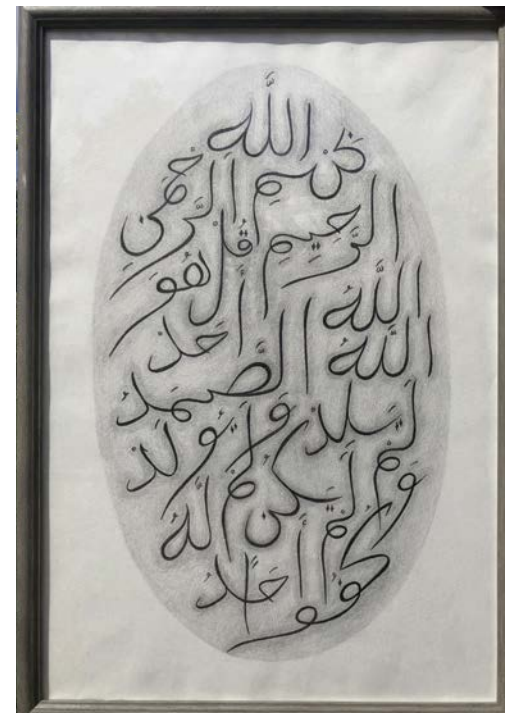 بسم الله
الرحمن الرحيم
قل هو
الله أحد
الله الصمد
لم يلد ولم يولد
ولم يكن له
كفوا أحد